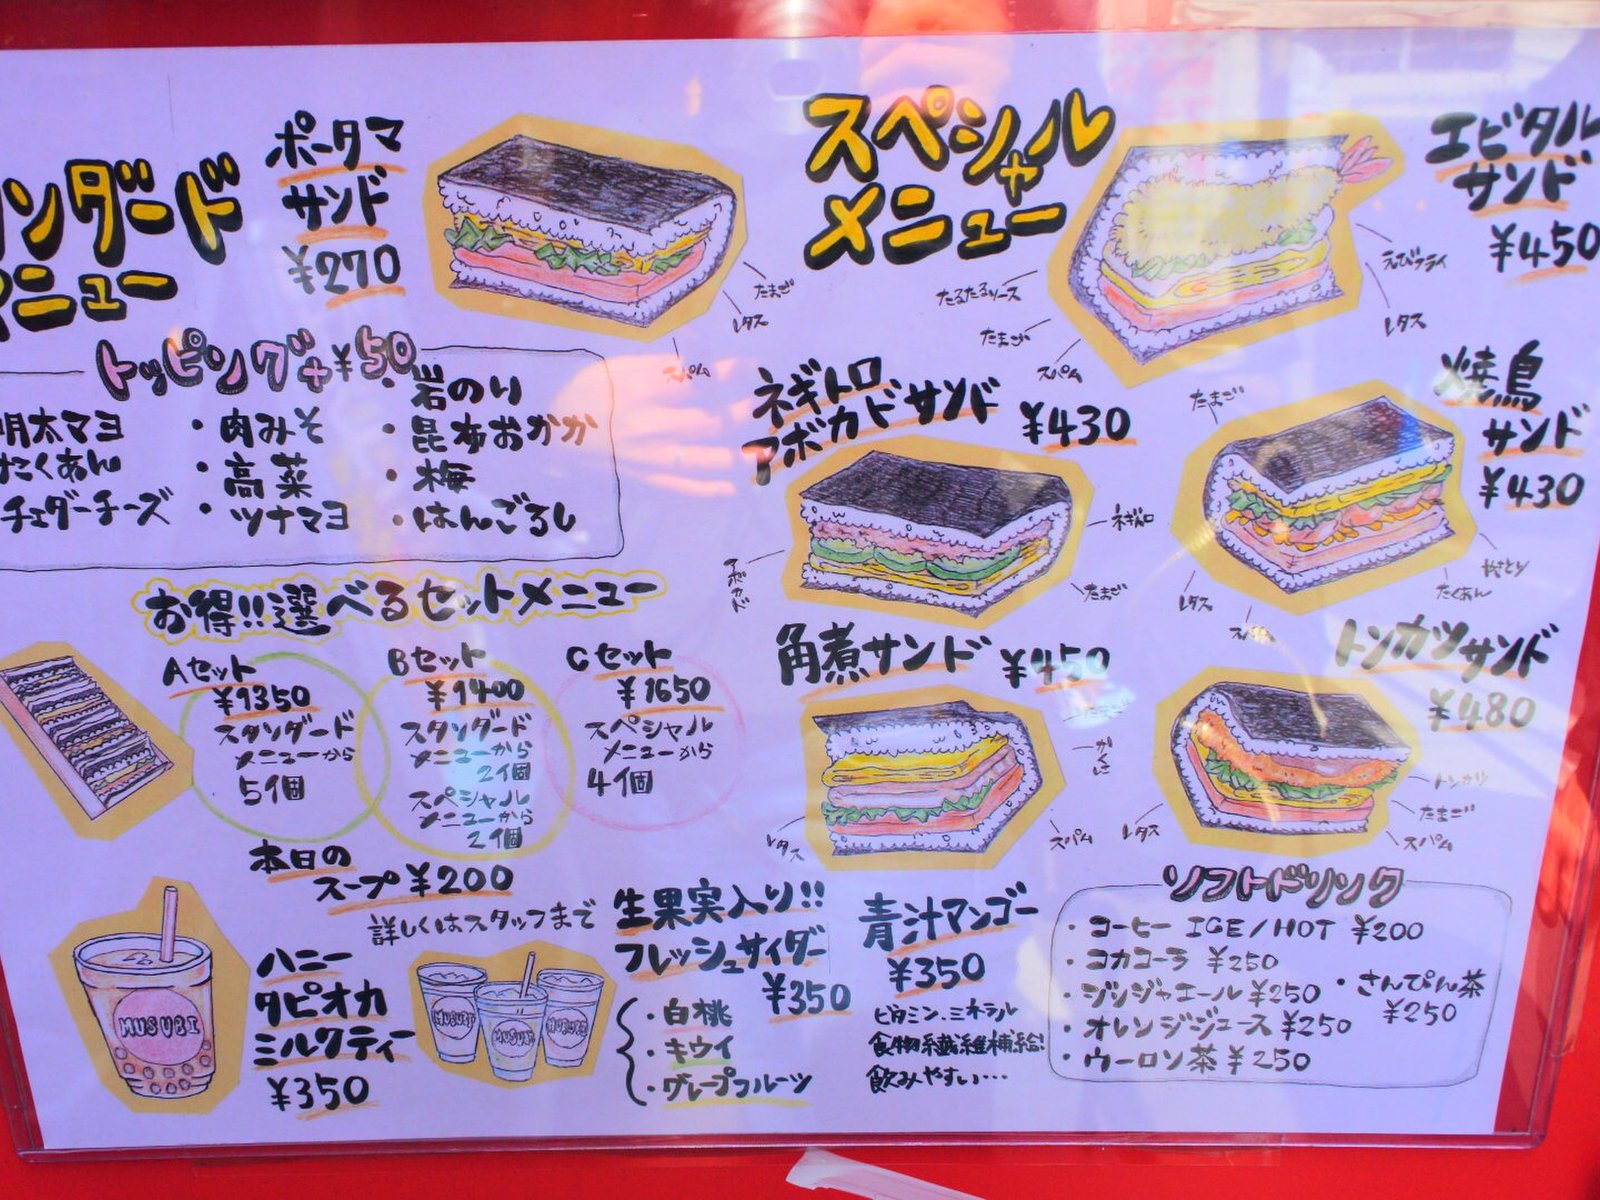 ンダード
メニュー
ポータマ
サンド
¥270
たまご
レタス
スパム
トッピング+¥50
明太マヨ
たくあん
チェダーチーズ
・肉みそ
・高菜
・ツナマヨ
・岩のり
・昆布おかか
・梅
・はんごろし
お得!!選べるセットメニュー
Aセット
¥1350
スタンダード
メニューから
5個
Bセット
¥1400
スタンダード
メニューから
2個
スペシャル
メニューから
2個
Cセット
¥1650
スペシャル
メニューから
4個
本日の
スープ ¥200
詳しくはスタッフまで
MUSUBI
ハニー
タピオカ
ミルクティー
¥350
MUSUBI
MUSUBI
MUSUBI
生果実入り!!
フレッシュサイダー
¥350
・白桃
・キウイ
・グレープフルーツ
青汁マンゴー
¥350
ビタミン、ミネラル
食物繊維補給!
飲みやすい…
スペシャル
メニュー
エビタル
サンド
¥450
たるたるソース
たまご
スパム
えびフライ
レタス
ネギトロ
アボカドサンド ¥430
ネギトロ
アボカド
たまご
焼鳥
サンド
¥430
たまご
レタス
スパム
やきとり
たくあん
角煮サンド ¥450
かくに
レタス
スパム
トンカツサンド
¥480
トンカツ
たまご
スパム
レタス
ソフトドリンク
・コーヒー ICE/HOT ¥200
・コカコーラ ¥250
・ジンジャエール ¥250
・オレンジジュース ¥250
・ウーロン茶 ¥250
・さんぴん茶
¥250